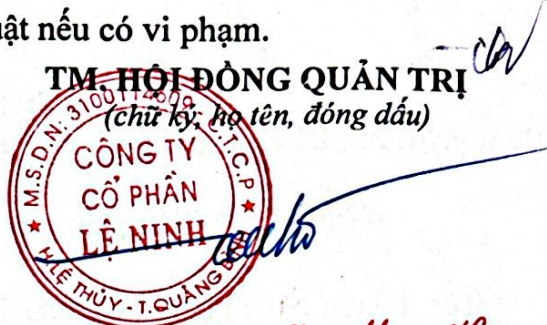 uật nếu có vi phạm.
TM. HỘI ĐỒNG QUẢN TRỊ
(chữ ký, họ tên, đóng dấu)
M.S.D.N: 3100114609 - C.T.C.P
CÔNG TY
CỔ PHẦN
LỆ NINH
H.LỆ THỦY - T.QUẢNG